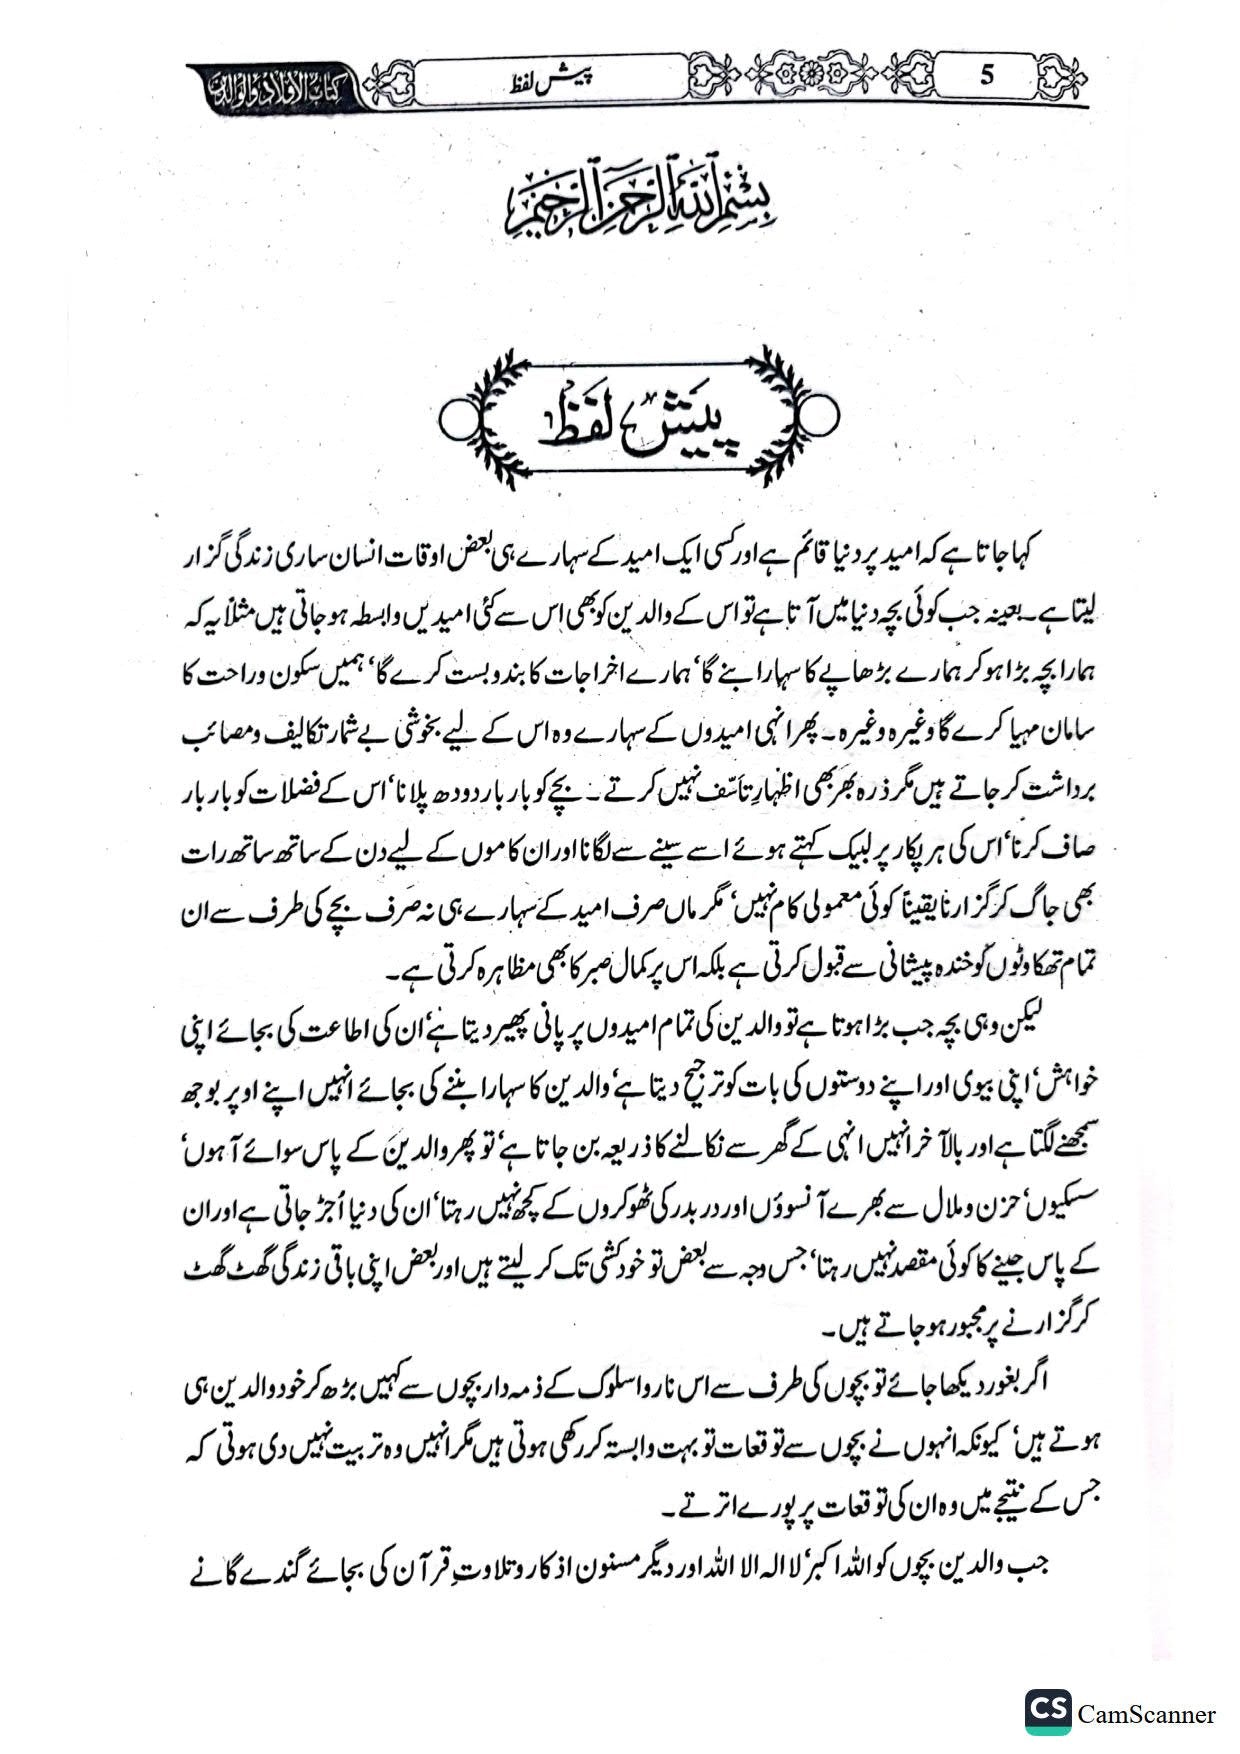 کتاب الاولاد والوالدین
پیش لفظ
5
بسم اللہ الرحمن الرحیم
پیش لفظ
کہا جاتا ہے کہ امید پر دنیا قائم ہے اور کسی ایک امید کے سہارے ہی بعض اوقات انسان ساری زندگی گزار
لیتا ہے۔ بعینہ جب کوئی بچہ دنیا میں آتا ہے تو اس کے والدین کو بھی اس سے کئی امیدیں وابستہ ہو جاتی ہیں مثلاً یہ کہ
ہمارا بچہ بڑا ہو کر ہمارے بڑھاپے کا سہارا بنے گا‘ ہمارے اخراجات کا بندوبست کرے گا‘ ہمیں سکون و راحت کا
سامان مہیا کرے گا وغیرہ وغیرہ۔ پھر انہی امیدوں کے سہارے وہ اس کے لیے بخوشی بے شمار تکالیف و مصائب
برداشت کر جاتے ہیں مگر ذرہ بھر بھی اظہارِ تأسف نہیں کرتے۔ بچے کو بار بار دودھ پلانا‘ اس کے فضلات کو بار بار
صاف کرنا‘ اس کی ہر پکار پر لبیک کہتے ہوئے اسے سینے سے لگانا اور ان کاموں کے لیے دن کے ساتھ ساتھ رات
بھی جاگ کر گزارنا یقیناً کوئی معمولی کام نہیں‘ مگر ماں صرف امید کے سہارے ہی نہ صرف بچے کی طرف سے ان
تمام تھکاوٹوں کو خندہ پیشانی سے قبول کرتی ہے بلکہ اس پر کمال صبر کا بھی مظاہرہ کرتی ہے۔
لیکن وہی بچہ جب بڑا ہوتا ہے تو والدین کی تمام امیدوں پر پانی پھیر دیتا ہے‘ ان کی اطاعت کی بجائے اپنی
خواہش‘ اپنی بیوی اور اپنے دوستوں کی بات کو ترجیح دیتا ہے‘ والدین کا سہارا بننے کی بجائے انہیں اپنے اوپر بوجھ
سمجھنے لگتا ہے اور بالآخر انہیں انہی کے گھر سے نکالنے کا ذریعہ بن جاتا ہے‘ تو پھر والدین کے پاس سوائے آہوں‘
سسکیوں‘ حزن و ملال سے بھرے آنسوؤں اور دربدر کی ٹھوکروں کے کچھ نہیں رہتا‘ ان کی دنیا اُجڑ جاتی ہے اور ان
کے پاس جینے کا کوئی مقصد نہیں رہتا‘ جس وجہ سے بعض تو خودکشی تک کر لیتے ہیں اور بعض اپنی باقی زندگی گھٹ گھٹ
کر گزارنے پر مجبور ہو جاتے ہیں۔
اگر بغور دیکھا جائے تو بچوں کی طرف سے اس ناروا سلوک کے ذمہ دار بچوں سے کہیں بڑھ کر خود والدین ہی
ہوتے ہیں‘ کیونکہ انہوں نے بچوں سے توقعات تو بہت وابستہ کر رکھی ہوتی ہیں مگر انہیں وہ تربیت نہیں دی ہوتی کہ
جس کے نتیجے میں وہ ان کی توقعات پر پورے اترتے۔
جب والدین بچوں کو اللہ اکبر‘ لا الہ الا اللہ اور دیگر مسنون اذکار و تلاوتِ قرآن کی بجائے گندے گانے
CS CamScanner